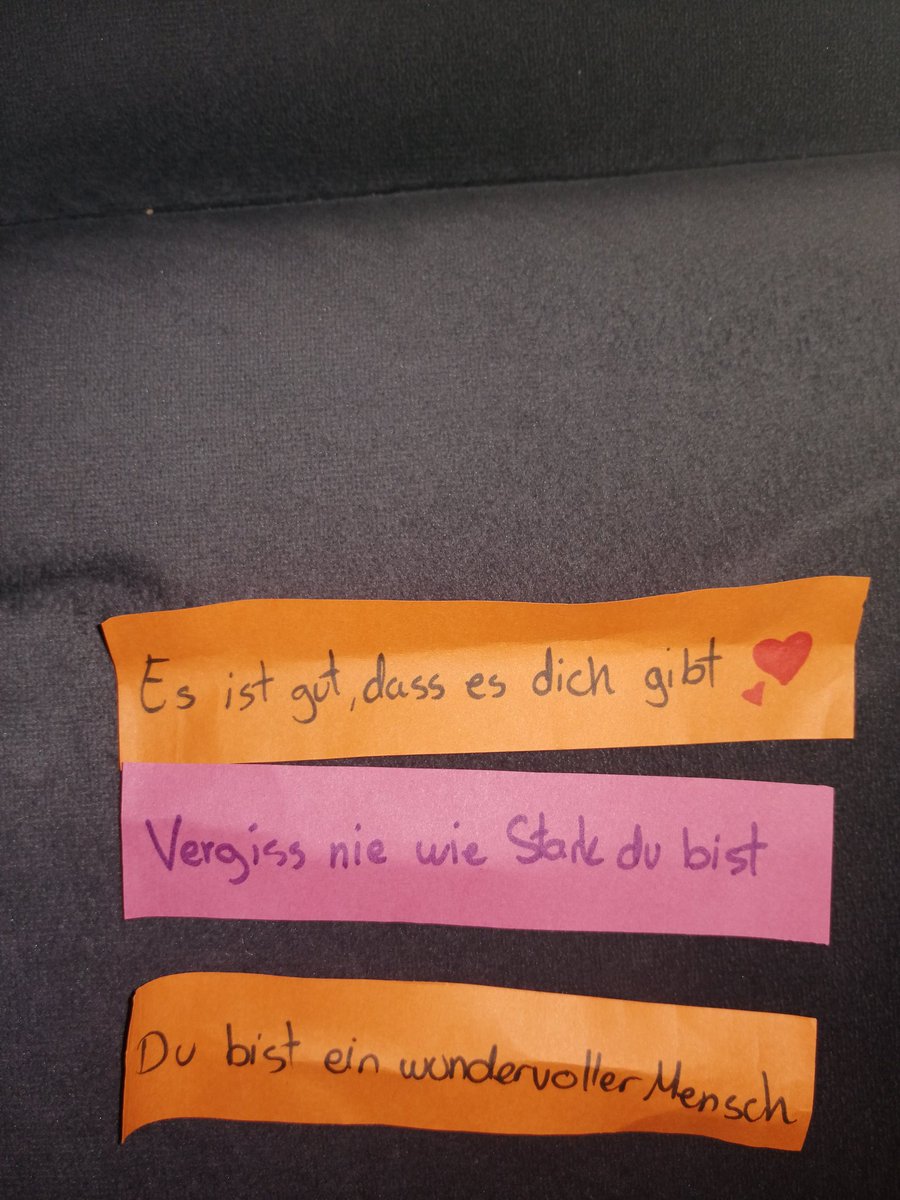 Es ist gut, dass es dich gibt
Vergiss nie wie Stark du bist
Du bist ein wundervoller Mensch